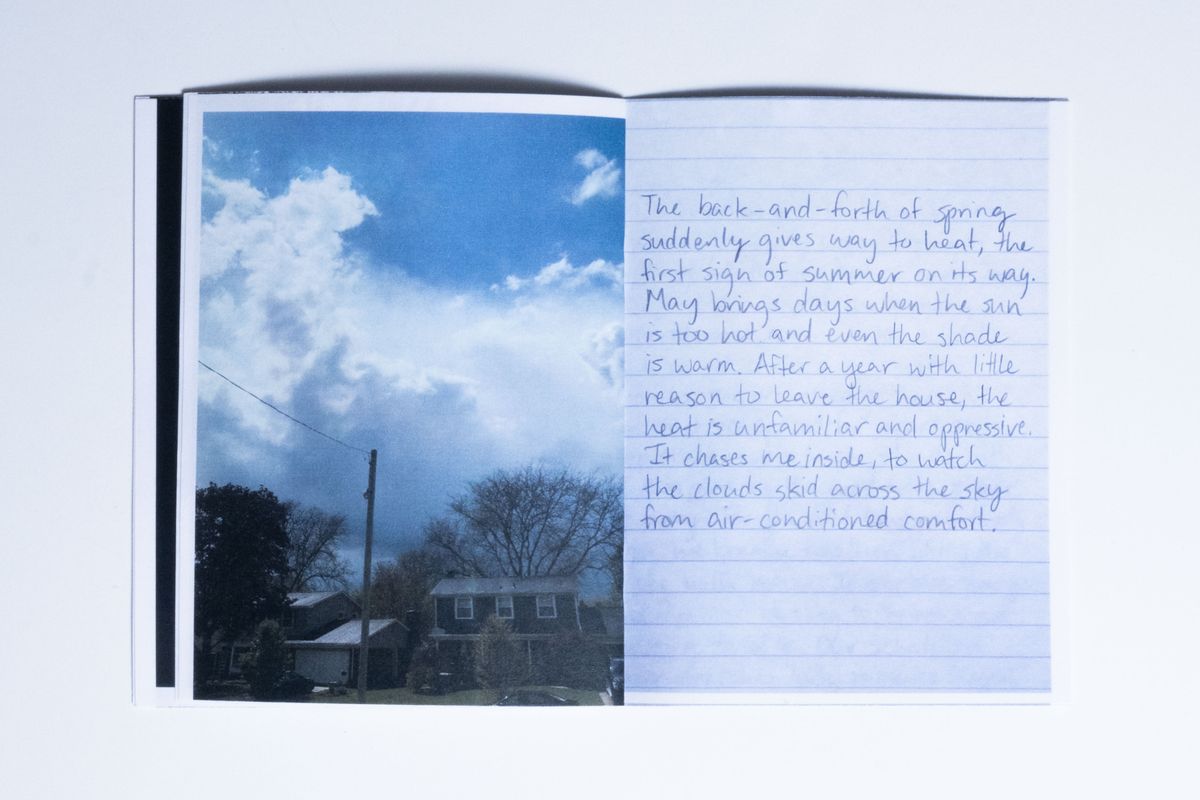 The back-and-forth of spring
suddenly gives way to heat, the
first sign of summer on its way.
May brings days when the sun
is too hot and even the shade
is warm. After a year with little
reason to leave the house, the
heat is unfamiliar and oppressive.
It chases me inside, to watch
the clouds skid across the sky
from air-conditioned comfort.